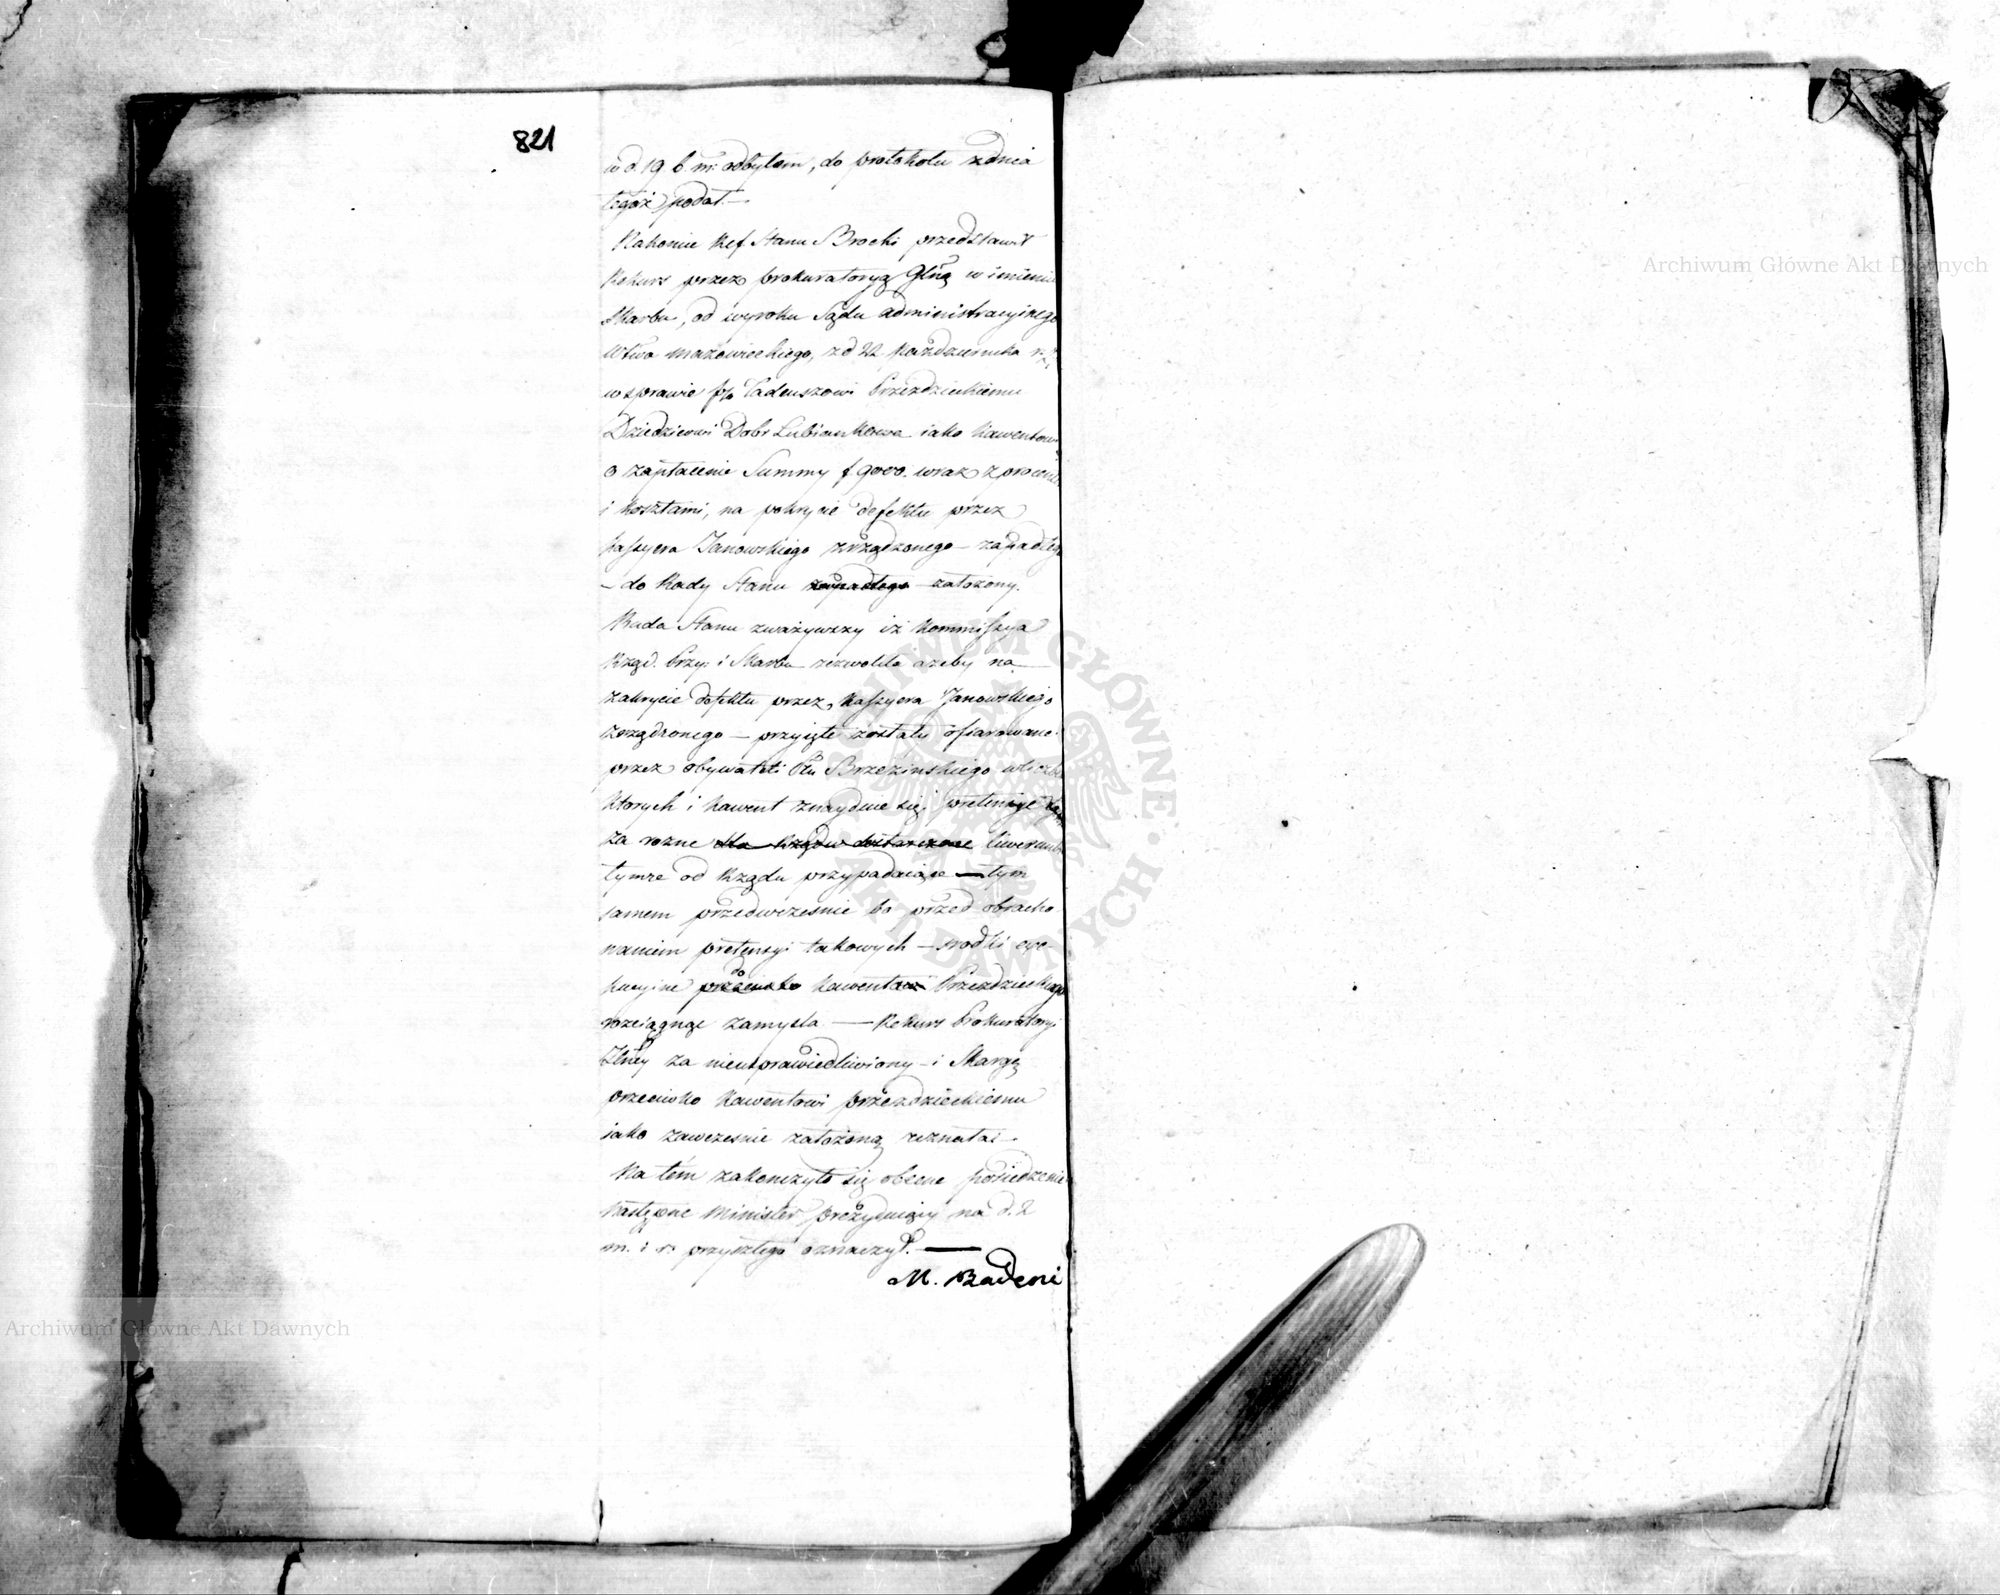 821
w d. 19 b. m. odbytem, do protokołu z dnia
tegoż podał. —
Nakoniec Ref. Stanu Brocki przedstawił
Rekurs przez Prokuratoryą Głną w imieniu
Skarbu, od wyroku Sądu administracyinego
Wtwa Mazowieckiego, z d 22 Października r.
w sprawie pko Tadeuszowi Przezdzieckiemu
Dziedzicowi Dobr Lubiankowa iako Kawentowi
o zapłacenie Summy f 9000. wraz z procen
i kosztami, na pokrycie defektu przez
Kassyera Janowskiego zrządzonego — zapadłego
— do Rady Stanu zapadłego założony.
Rada Stanu zważywszy iż Kommissya
Rząd. Przy: i Skarbu zezwoliła ażeby na
zakrycie defektu przez Kassyera Janowskiego
zrządzonego — przyięte zostały ofiarowane
przez obywateli Ptu Brzezinskiego w liczbie
ktorych i Kawent znayduie się, pretensye
za rozne dla Rządu dostarczone liwerunki
tymże od Rządu przypadaiące — tym
samem przedwcześnie bo przed obracho
waniem pretensyi takowych — srodki exe-
kucyine przeciwko do Kawentowi Przezdzieckiego
rozciągnąć zamysla — Rekurs Prokuratoryi
Głney za nieusprawiedliwiony — i Skargę
przeciwko Kawentowi Przezdzieckiemu
jako zawczesnie założoną uznała: —
Na tém zakończyło się obecne posiedzenie
następne Minister Prezyduiący na d. 2
m. i r. przyszłego oznaczył. —
M. Badeni
Archiwum Główne Akt Dawnych
Archiwum Główne Akt Dawnych
ARCHIWUM GŁÓWNE AKT DAWNYCH